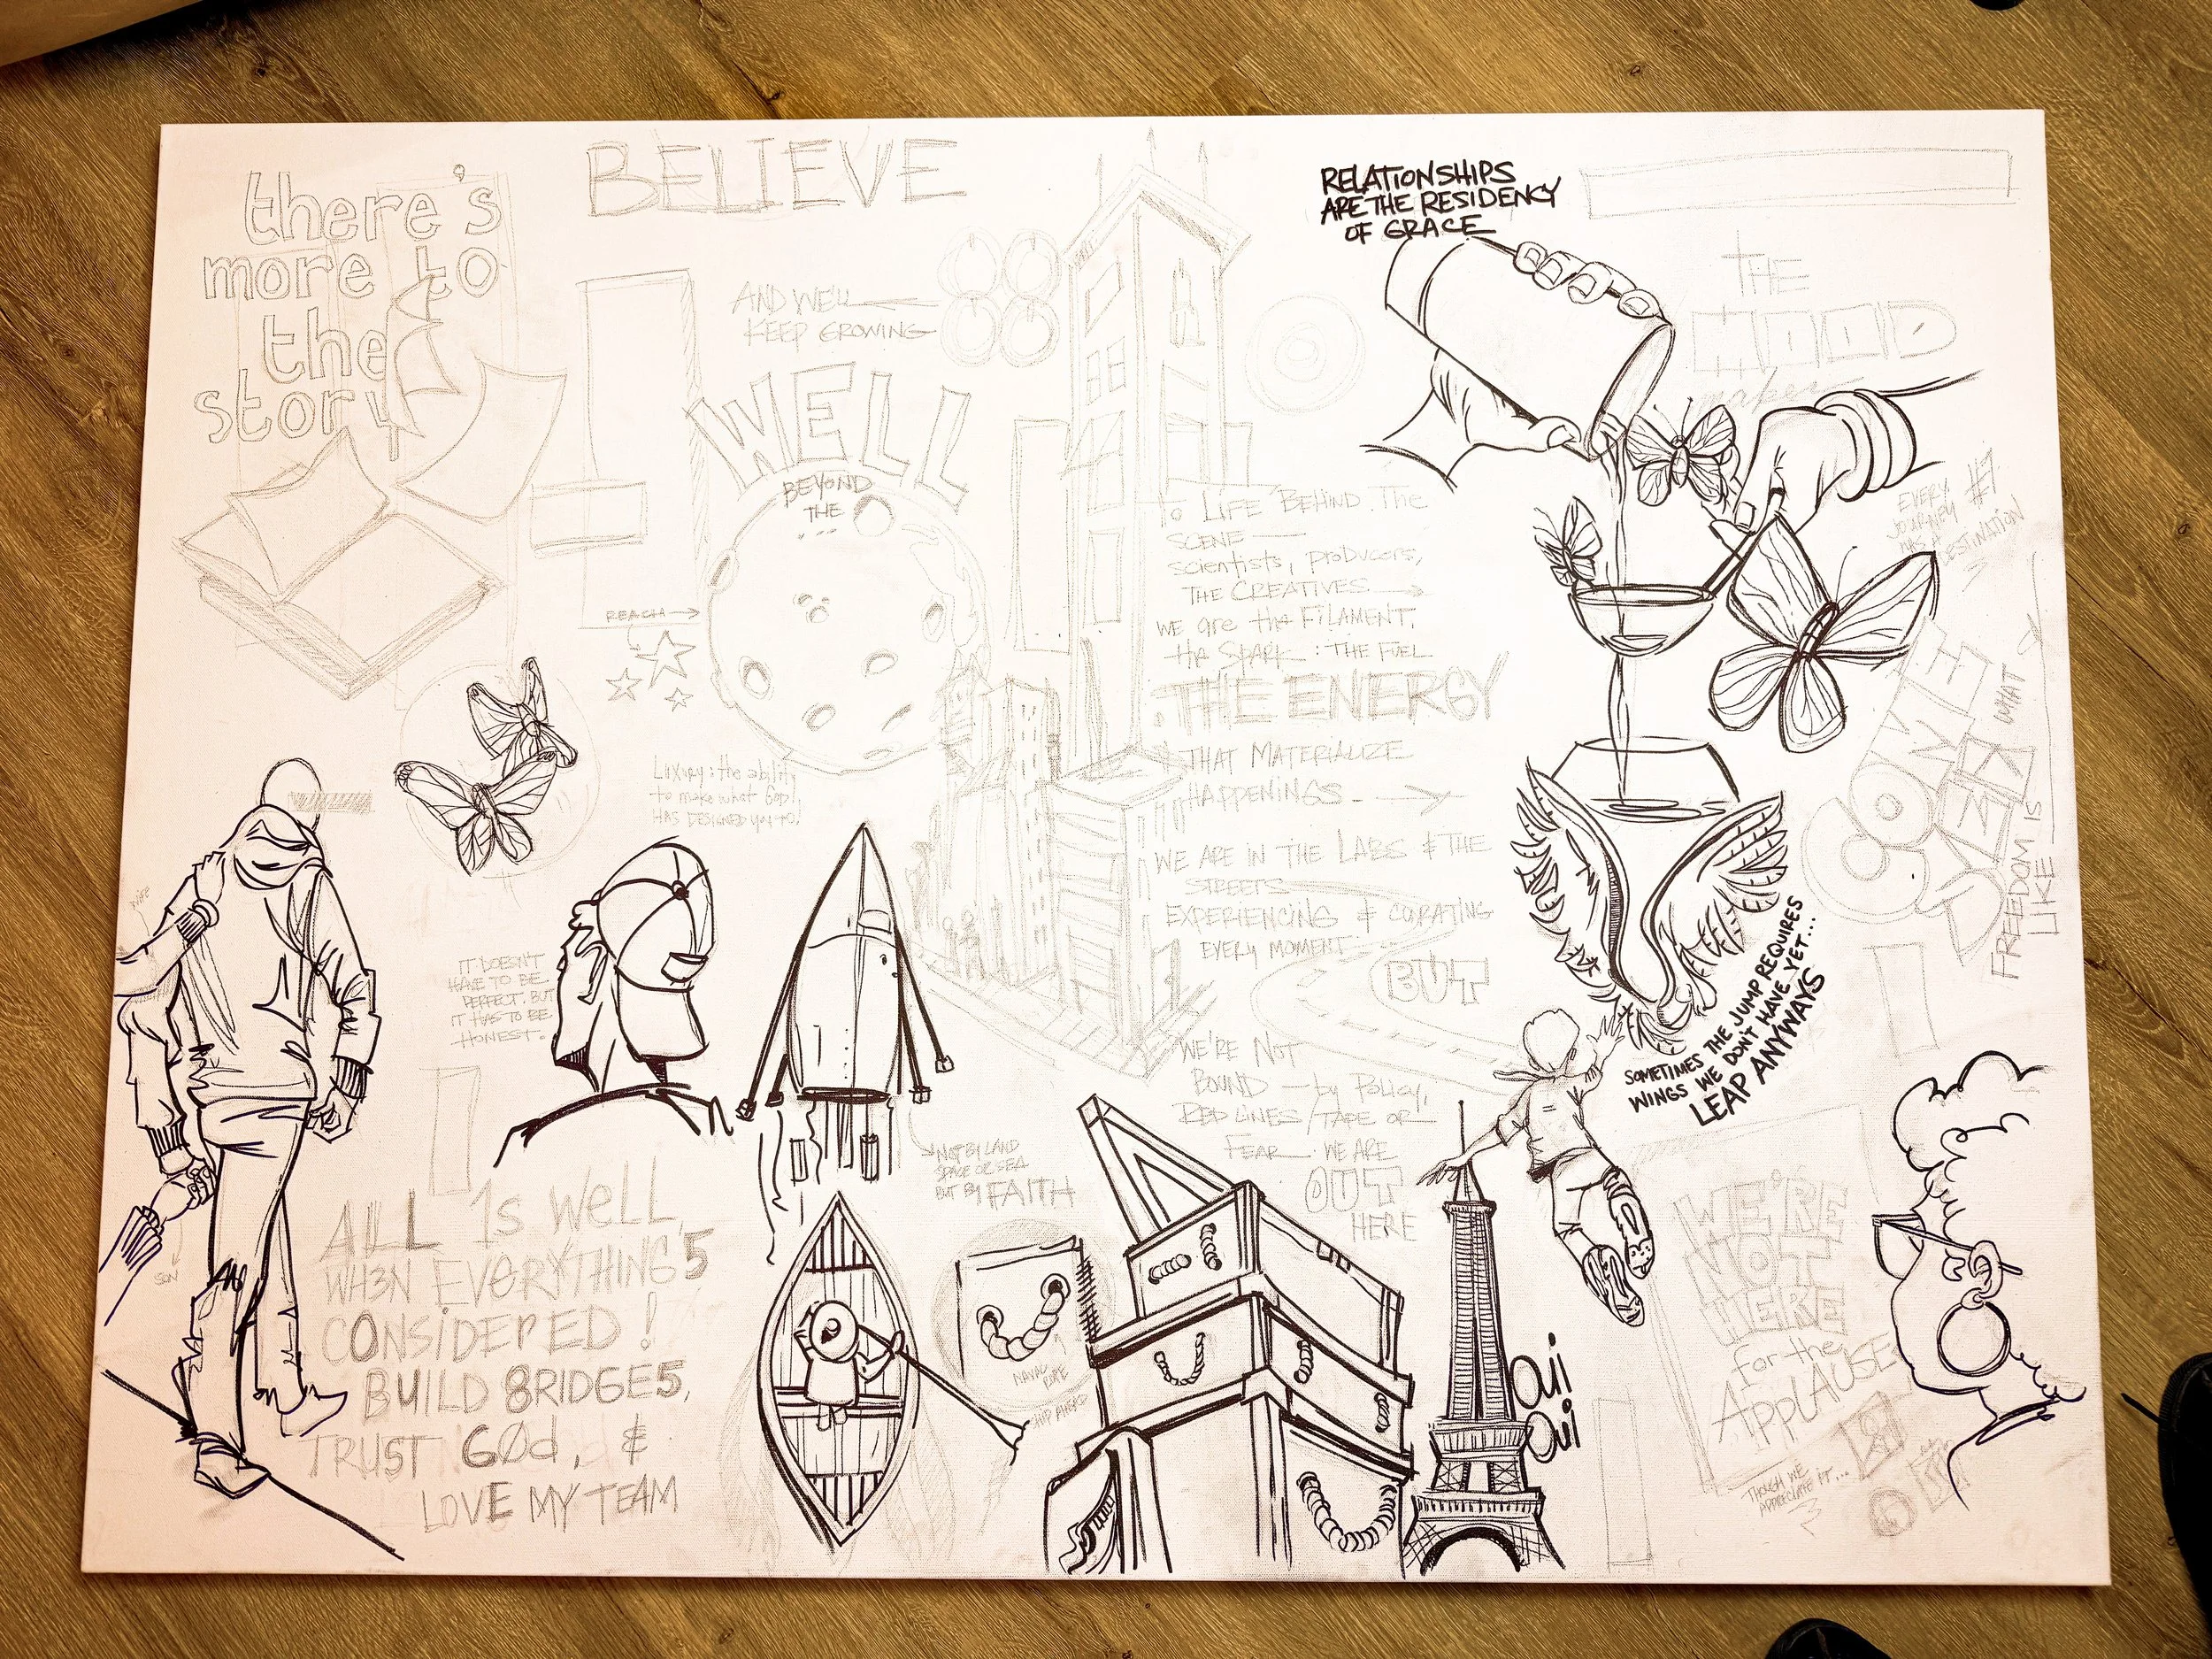 there's
more to
the
story
BELIEVE
AND WE'LL
KEEP GROWING
WELL
BEYOND
THE
...
REACH →
Luxury: the ability
to make what God
HAS DESIGNED you to
RELATIONSHIPS
ARE THE RESIDENCY
OF GRACE
THE
MOOD
maker
TO LIFE BEHIND THE
SCENE —
scientists, producers,
THE CREATIVES →
WE are the FILAMENT,
the SPARK : THE FUEL
THE ENERGY
THAT MATERIALIZE
HAPPENINGS. →
WE ARE IN THE LABS & THE
STREETS
EXPERIENCING & CURATING
EVERY MOMENT
BUT
WE'RE NOT
BOUND — by Policy,
RED LINES / TAPE OR
FEAR. WE ARE
OUT
HERE
EVERY #7
JOURNEY
HAS A
DESTINATION
COME
WHAT
FREEDOM IS
LIKE
SOMETIMES THE JUMP REQUIRES
WINGS WE DON'T HAVE YET...
LEAP ANYWAYS
IT DOESN'T
HAVE TO BE
PERFECT. BUT
IT HAS TO BE
HONEST.
SON
ALL 1s WELL
WH3N EVERYTHING'5
CONSIDERED!
BUILD 8RIDGE5,
TRUST GØd, &
LOVE MY TEAM
NOT BY LAND
SPACE OR SEA
BUT BY FAITH
OUI
OUI
WE'RE
NOT
HERE
for the
APPLAUSE
THOUGH WE
APPRECIATE IT...